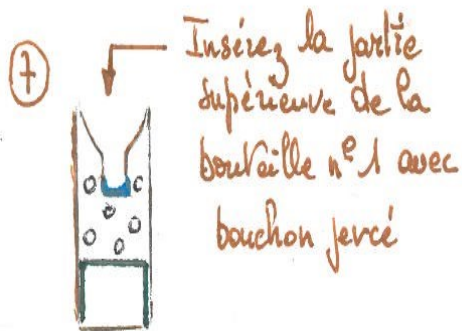 7
Insérez la partie
supérieure de la
bouteille n° 1 avec
bouchon percé